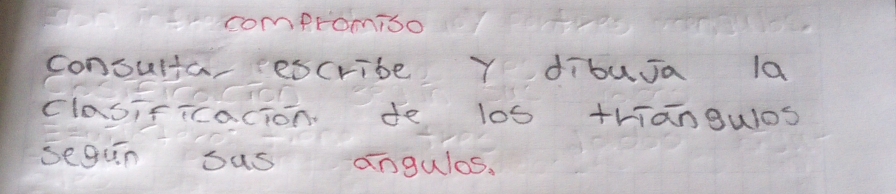 compromiso
Consulta escribe y dibuja la
clasificación de los triángulos
según sus ángulos.